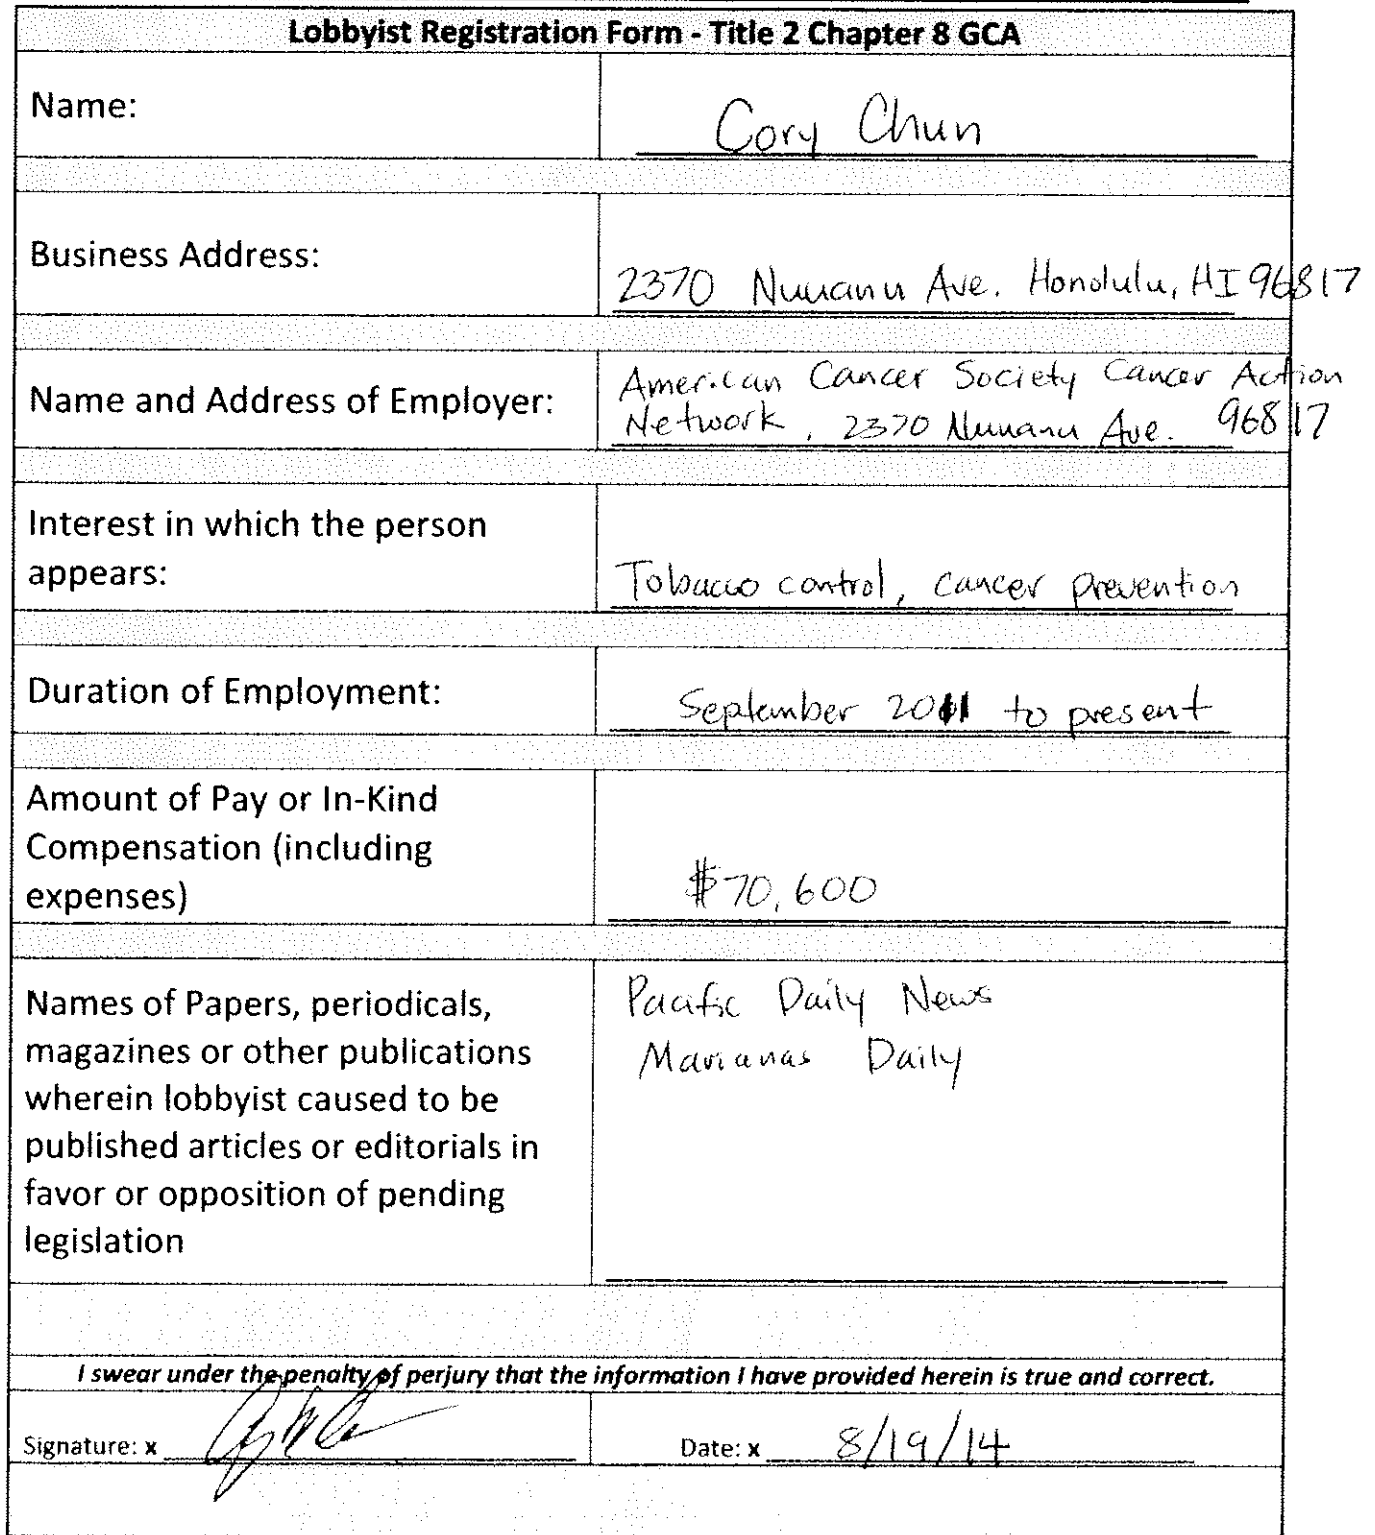 Lobbyist Registration Form - Title 2 Chapter 8 GCA
Name:
Cory Chun
Business Address:
2370 Nuuanu Ave. Honolulu, HI 96817
Name and Address of Employer:
American Cancer Society Cancer Action
Network, 2370 Nuuanu Ave. 96817
Interest in which the person
appears:
Tobacco control, cancer prevention
Duration of Employment:
September 2011 to present
Amount of Pay or In-Kind
Compensation (including
expenses)
$70,600
Names of Papers, periodicals,
magazines or other publications
wherein lobbyist caused to be
published articles or editorials in
favor or opposition of pending
legislation
Pacific Daily News
Marianas Daily
I swear under the penalty of perjury that the information I have provided herein is true and correct.
Signature: x
Date: x 8/19/14